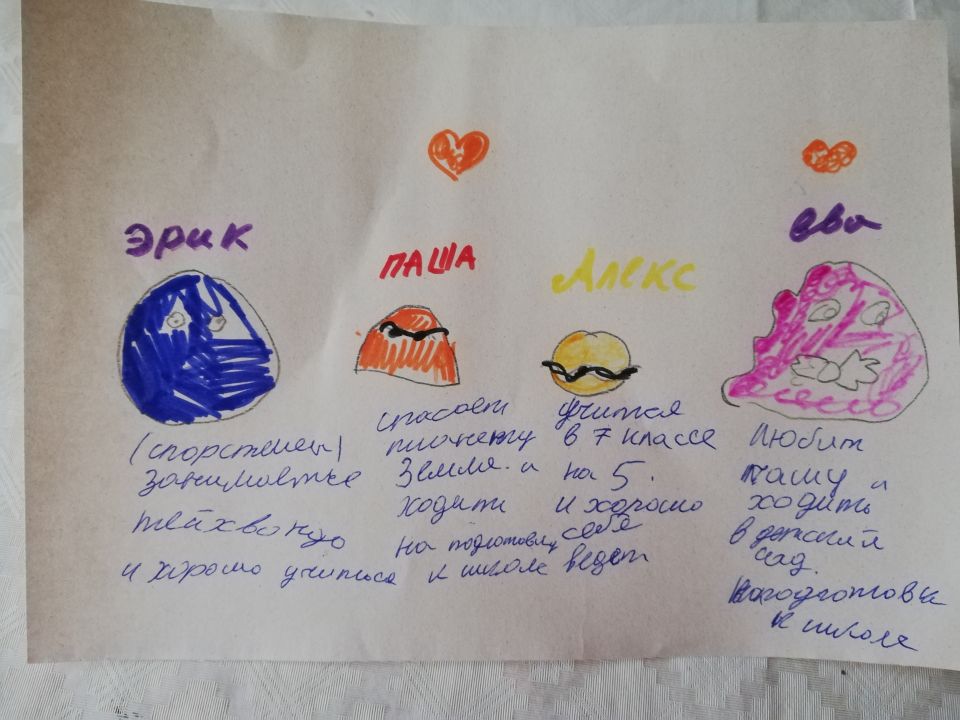 Эрик
(спортсмен)
занимается
тейхвондо
и хорошо учиться
Паша
спасает
планету
Земля. и
ходит
на подготовку
к школе
Алекс
учится
в 7 классе
на 5.
и хорошо
себя
ведет
Ева
Любит
пашу и
ходить
в детский
сад.
на подготовки
к школе